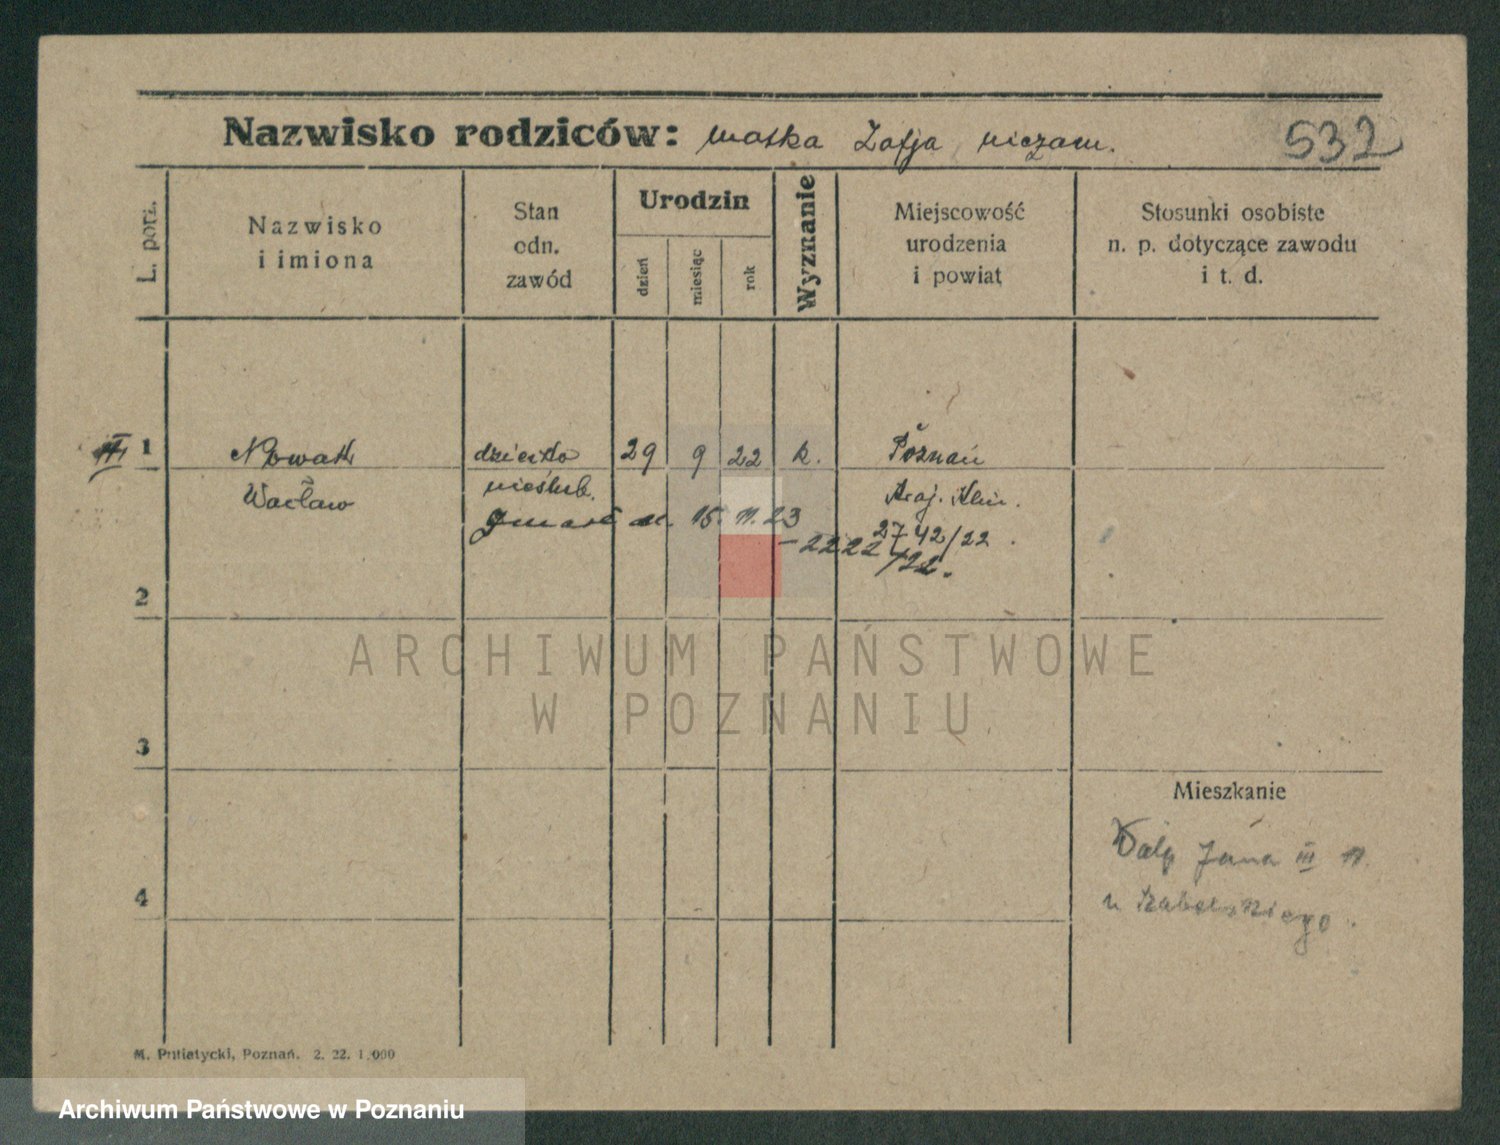 Nazwisko rodziców: matka Zofja niezam. 532
L. porz.
Nazwisko
i imiona
Stan
odn.
zawód
Urodzin
dzień
miesiąc
rok
Wyznanie
Miejscowość
urodzenia
i powiat
Stosunki osobiste
n. p. dotyczące zawodu
i t. d.
1 Nowak dziecko 29 9 22 k. Poznań
Wacław nieślub. Kraj. Klin.
zmarł 15. 11. 23 2742/22
-2222
/22.
2
3
Mieszkanie
Jana III 11.
4
u
M. Putiatycki, Poznań. 2. 22. 1.000
ARCHIWUM PAŃSTWOWE
W POZNANIU
Archiwum Państwowe w Poznaniu